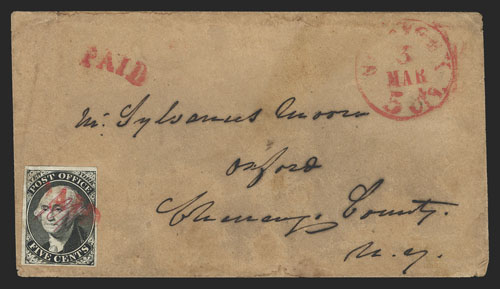 PAID
NEW-YORK
3
MAR
5 cts
Mr. Sylvanus Moore
Oxford
Chenango County.
N.Y.
POST OFFICE
FIVE CENTS